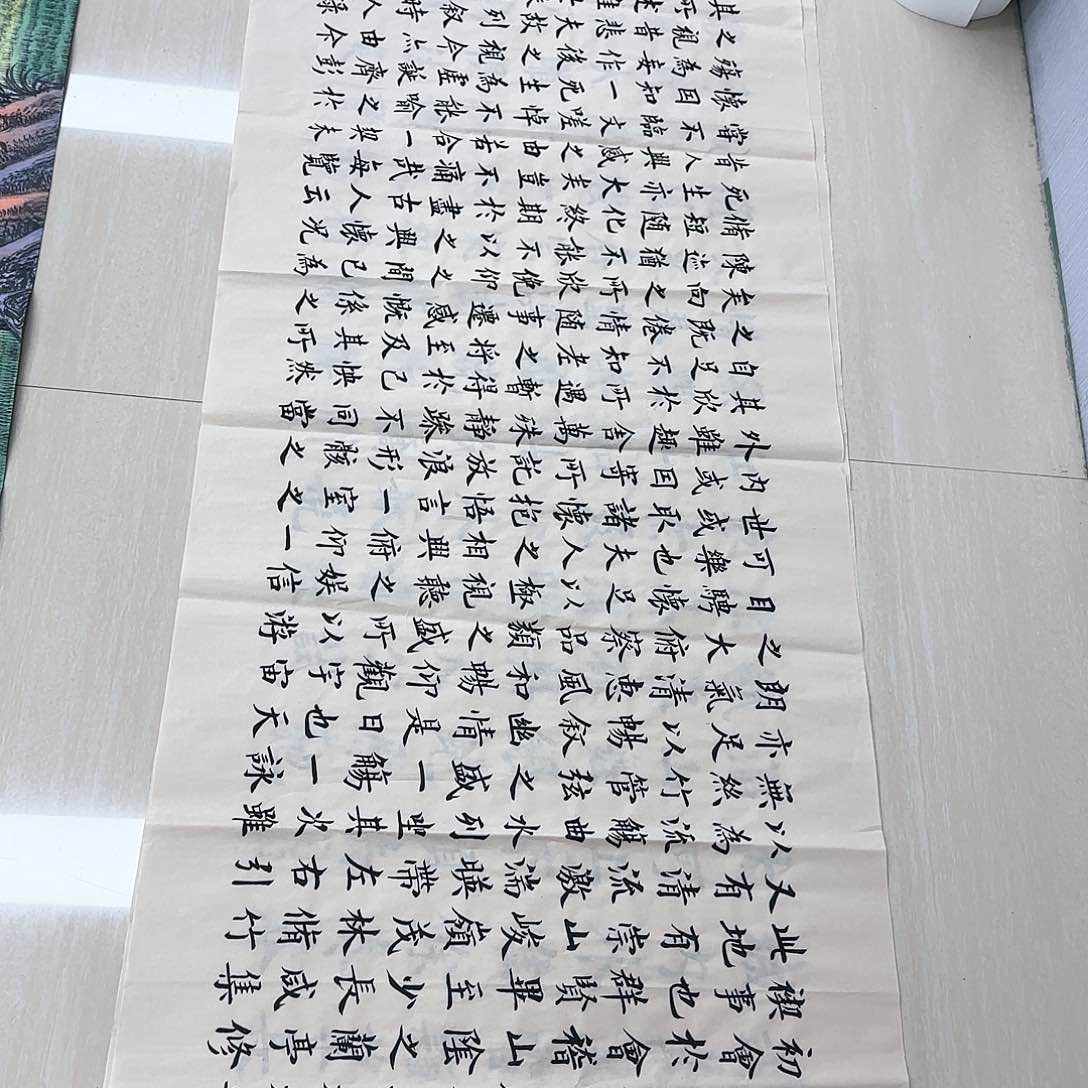 初會於會稽山陰之蘭亭修
禊事也群賢畢至少長咸集
此地有崇山峻嶺茂林脩竹
又有清流激湍映帶左右引
以為流觴曲水列坐其次雖
無絲竹管弦之盛一觴一詠
亦足以暢敘幽情是日也天
朗氣清惠風和暢仰觀宇宙
之大俯察品類之盛所以游
目騁懷足以極視聽之娛信
可樂也夫人之相與俯仰一
世或取諸懷抱悟言一室之
內或因寄所託放浪形骸之
外雖趣舍萬殊靜躁不同當
其欣於所遇暫得於己怏然
自足不知老之將至及其所
之既倦情隨事遷感慨係之
矣向之所欣俛仰之間已為
陳迹猶不能不以之興懷況
脩短隨化終期於盡古人云
死生亦大矣豈不痛哉每覽
昔人興感之由若合一契未
嘗不臨文嗟悼不能喻之於
懷固知一死生為虛誕齊彭
殤為妄作後之視今亦由今
之視昔悲夫故列敘時人錄
其所述雖